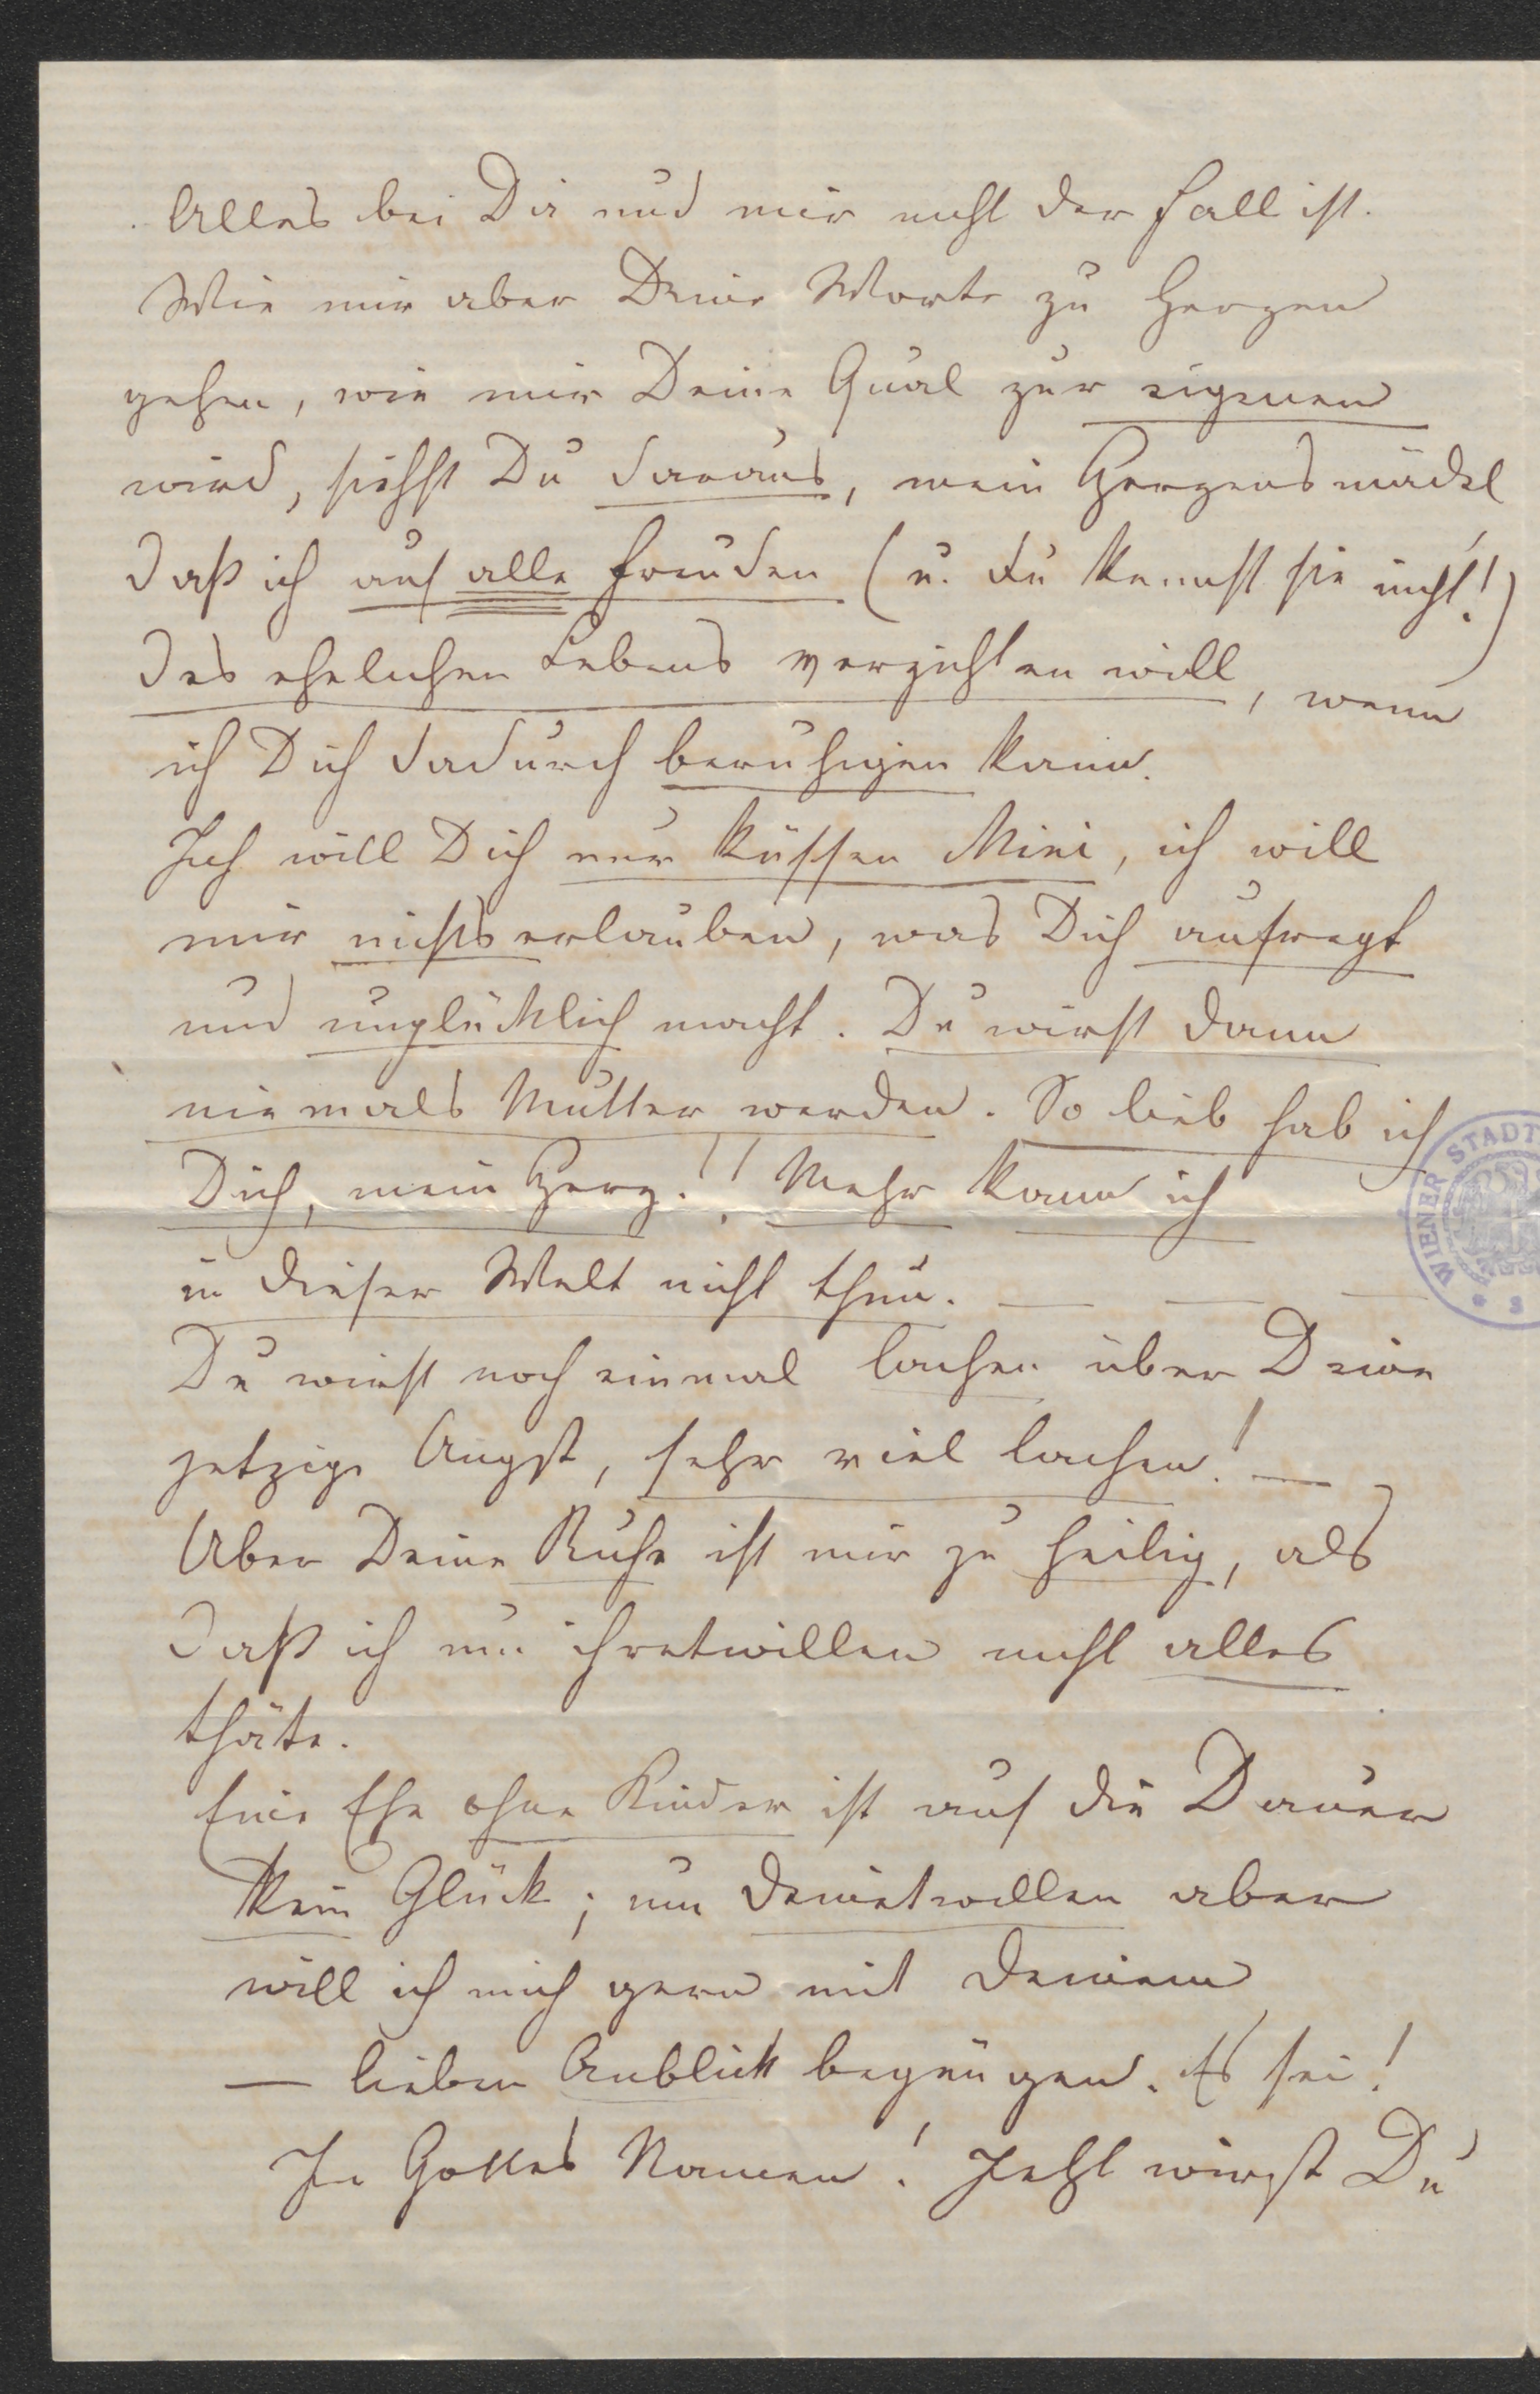 Alles bei Dir und mir nicht der Fall ist.
Wie mir aber Deine Worte zu Herzen
gehen, wie mir Deine Qual zur eigenen
wird, siehst Du daraus, mein Herzensmädel
daß ich auf alle Freuden (u. Du kennst sie nicht!)
des ehelichen Lebens verzichten will, wenn
ich Dich dadurch beruhigen kann.
Ich will Dich nur küssen Mini, ich will
mir nichts erlauben, was Dich aufregt
und unglücklich macht. Du wirst dann
niemals Mutter werden. So lieb hab ich
Dich, mein Herz!! Mehr kann ich
in dieser Welt nicht thun. — — —
Du wirst noch einmal lachen über Deine
jetzige Angst, sehr viel lachen! —
Aber Deine Ruhe ist mir zu heilig, als
daß ich um ihretwillen nicht alles
thäte.
Eine Ehe ohne Kinder ist auf die Dauer
kein Glück; um Deinetwillen aber
will ich mich gern mit Deinem
— lieben Anblick begnügen. Es sei!
In Gottes Namen! Jetzt wirst Du
WIENER STADT